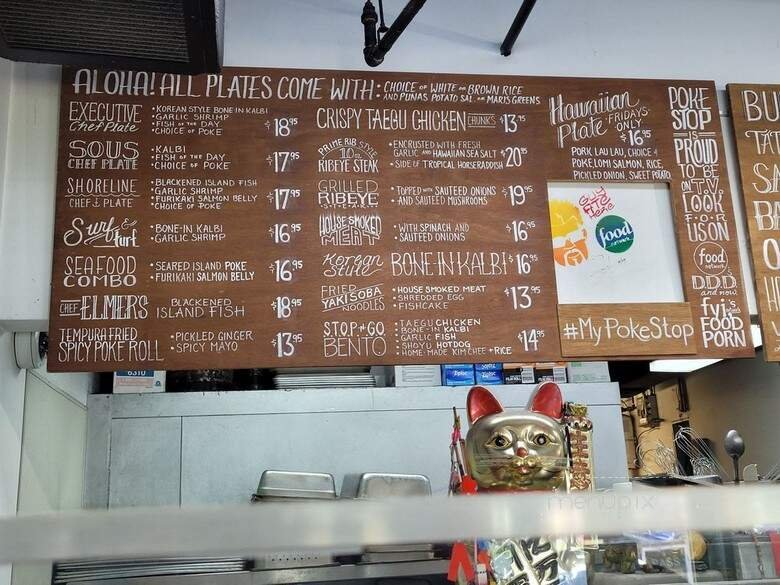 ALOHA! ALL PLATES COME WITH: • CHOICE OF WHITE OR BROWN RICE
• AND PUNAS POTATO SAL. OR MARIS GREENS
EXECUTIVE
Chef Plate
• KOREAN STYLE BONE IN KALBI
• GARLIC SHRIMP
• FISH OF THE DAY
• CHOICE OF POKE
$18.95
SOUS
CHEF PLATE
• KALBI
• FISH OF THE DAY
• CHOICE OF POKE
$17.95
SHORELINE
CHEF PLATE
• BLACKENED ISLAND FISH
• GARLIC SHRIMP
• FURIKAKI SALMON BELLY
• CHOICE OF POKE
$17.95
Surf &
turf
• BONE-IN KALBI
• GARLIC SHRIMP
$16.95
SEAFOOD
COMBO
• SEARED ISLAND POKE
• FURIKAKI SALMON BELLY
$16.95
CHEF ELMER'S
BLACKENED
ISLAND FISH
$18.95
TEMPURA FRIED
SPICY POKE ROLL
• PICKLED GINGER
• SPICY MAYO
$13.95
CRISPY TAEGU CHICKEN CHUNKS $13.95
PRIME RIB STYLE
10oz
RIBEYE STEAK
• ENCRUSTED WITH FRESH
GARLIC AND HAWAIIAN SEA SALT
• SIDE OF TROPICAL HORSERADISH
$20.95
GRILLED
RIBEYE
• TOPPED WITH SAUTEED ONIONS
AND SAUTEED MUSHROOMS
$19.95
HOUSE SMOKED
MEAT
• WITH SPINACH AND
SAUTEED ONIONS
$16.95
Korean
Style
BONE IN KALBI $16.95
FRIED
YAKISOBA
NOODLES
• HOUSE SMOKED MEAT
• SHREDDED EGG
• FISHCAKE
$13.95
STOP-N-GO
BENTO
• TAEGU CHICKEN
• BONE-IN KALBI
• GARLIC FISH
• SHOYU HOTDOG
• HOME-MADE KIM CHEE + RICE
$14.95
Hawaiian
Plate • FRIDAYS •
ONLY
$16.95
PORK LAU LAU, CHOICE of
POKE, LOMI SALMON, RICE,
PICKLED ONION, SWEET POTATO
GUY
ATE
Here
food
network
#MyPokeStop
POKE
STOP
IS
PROUD
TO BE
ON T.V.
LOOK
F•O•R
US ON
food
network
D.D.D.
and now
fyi's
FOOD
PORN
6310
Ziploc
Ziploc
menupix